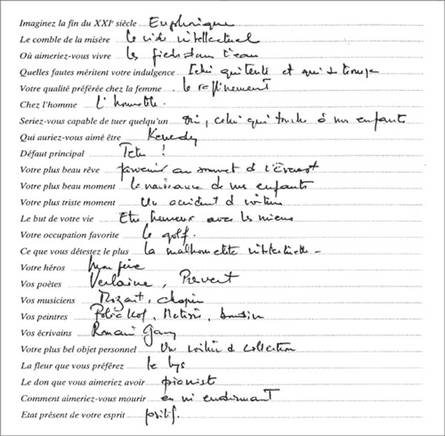 Imaginez la fin du XXIe siècle Euphorique
Le comble de la misère le vide intellectuel
Où aimeriez-vous vivre les pieds dans l'eau
Quelles fautes méritent votre indulgence Celui qui tente et qui se trompe
Votre qualité préférée chez la femme le raffinement
Chez l'homme L'honnêteté.
Seriez-vous capable de tuer quelqu'un oui, celui qui touche à mes enfants
Qui auriez-vous aimé être Kennedy
Défaut principal Tetu !
Votre plus beau rêve parvenir au sommet de l'Everest
Votre plus beau moment la naissance de mes enfants
Votre plus triste moment Un accident de voiture
Le but de votre vie Etre heureux avec les miens
Votre occupation favorite le golf.
Ce que vous détestez le plus la malhonnêteté intellectuelle -
Votre héros Mon père
Vos poètes Verlaine, Prevert
Vos musiciens Mozart, Chopin
Vos peintres Matisse,
Vos écrivains Romain Gary
Votre plus bel objet personnel Un voiture de collection
La fleur que vous préférez le lys
Le don que vous aimeriez avoir pianiste
Comment aimeriez-vous mourir en m'endormant
Etat présent de votre esprit positif.